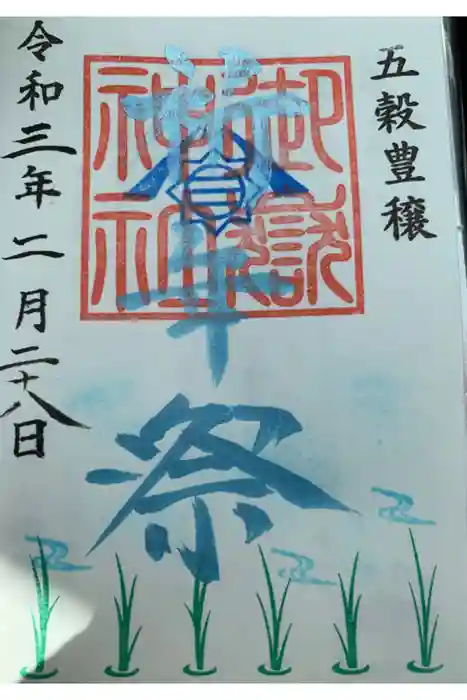 五穀豊穣
祈年祭
御嶽神社
三
令和三年二月二十八日